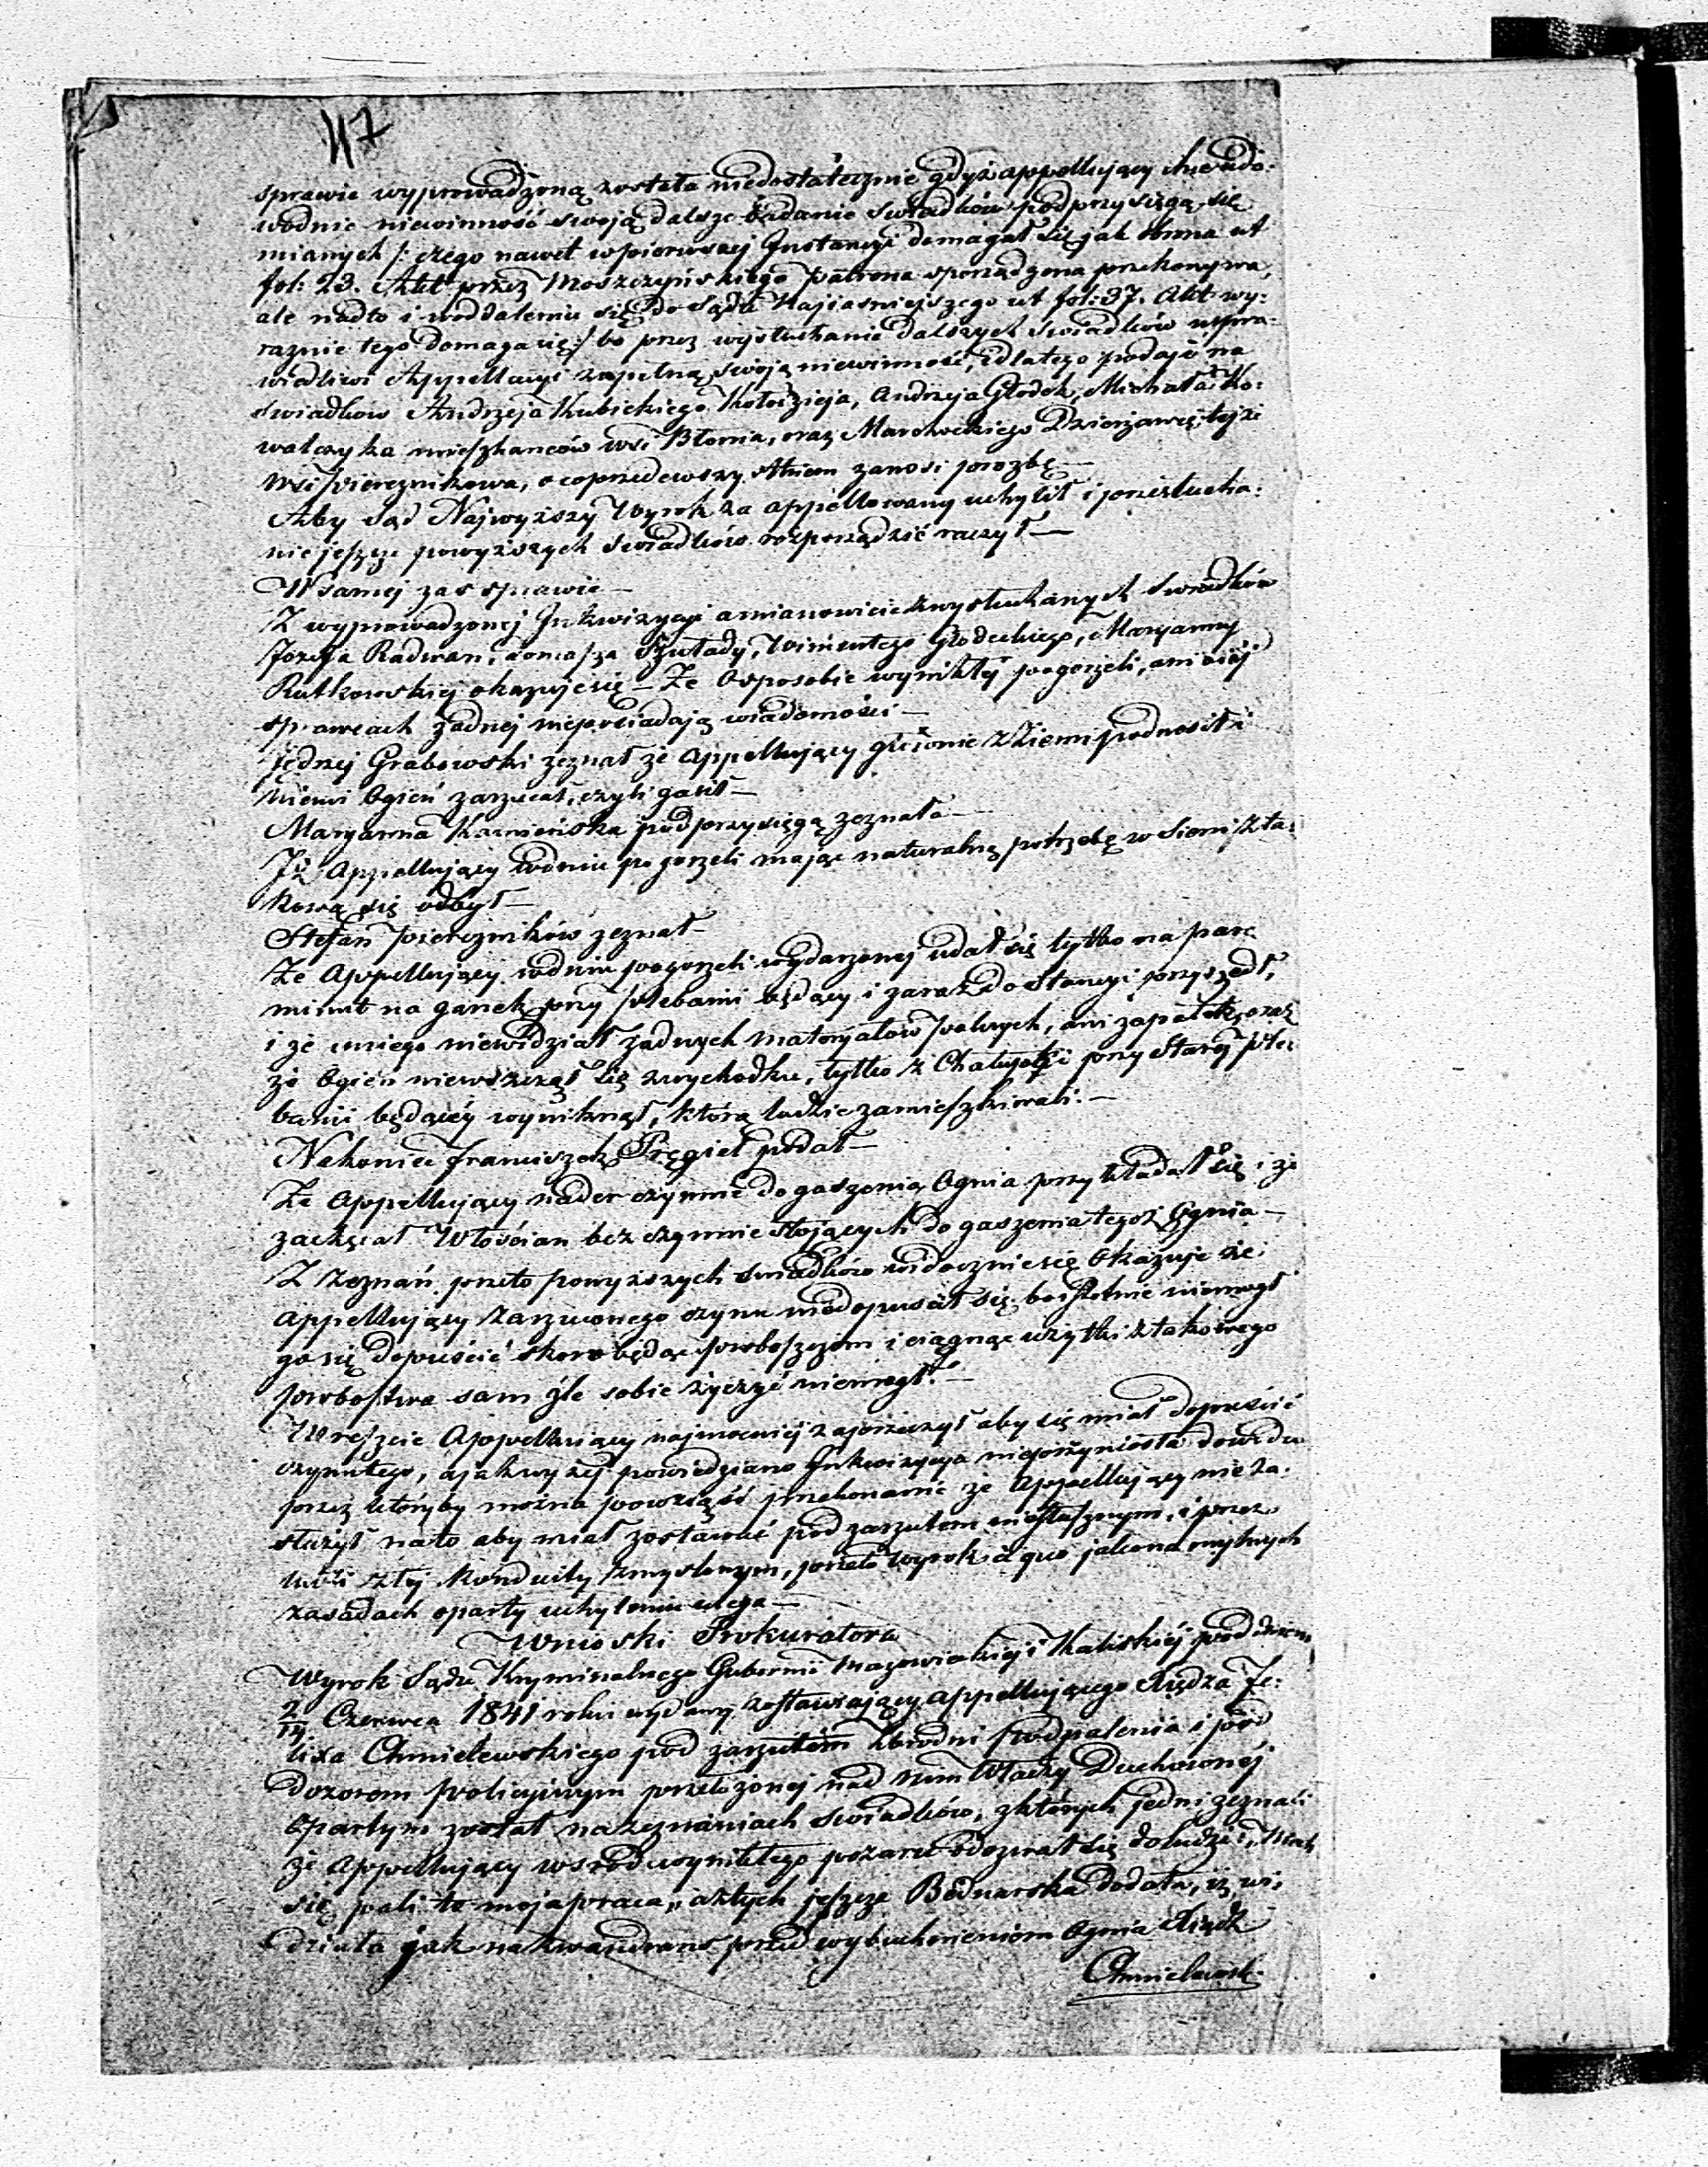 47
sprawie wyprowadzoną została niedostatecznie gdyż appellujący chce udo:
wodnic niewinność swoją dalsze badanie swiadków pod przysięgą się
mianych /: czego nawet w pierwszej Instancyi domagał się jak obrona ut
fol: 23. Akt przez Moszczyńskiego Patrona sporządzona przekonywa,
ale nadto i w oddaleniu się do Sądu Najjasniejszego ut fol: 37. Akt wy:
raznie tego domaga się :/ bo przez wysłuchanie dalszych swiadków uspra:
wiedliwi Appellacyi zupełną swoją niewinność, i dlatego podaje na
swiadków Andrzeja Kubickiego Kołodzieja, Andrzeja Głodek, Michała Ko:
walczyka mieszkańców wsi Błonia, oraz Marchockiego Dzierżawcę tejże
wsi Pierznikowa, o co przedewszystkiem zanosi prozbę —
Ażeby Sąd Najwyższy Wyrok za appellowany uchylił i przesłucha:
nie jeszcze powyższych swiadków rozporządzić raczył —
W samej zas sprawie —
Z wyprowadzonej Inkwizycyi a mianowicie z wysłuchanych swiadków
Józefa Radwan, Tomasza Szulady, Wincentego Głodeckiego, Maryanny
Rutkowskiej okazuje się — Że o sposobie wynikłej pogorzeli, ani o jej
sprawcach żadnej nieposiadają wiadomości —
Jędrzej Grabowski zeznał że appellujący głownie z Ziemi podnosił i
niemi Ogień zarzucał, czyli gasił —
Maryanna Kamieńska pod przysięgą zeznała —
Iż Appellujący w dniu pogorzeli mając naturalną potrzebę w Sieni z ta:
kową się odbył —
Stefan Pierzników zeznał —
Że Appellujący w dniu pogorzeli wydarzonej udał się tylko na parę
minut na ganek przy plebanii będący i zaraz do stancyi przyszedł,
i że u niego niewidział żadnych materyałów palnych, ani zapałek, oraz
że Ogień niewszczął się z wychodku, tylko z Chałupki przy Starej ple:
banii będącéy wyniknął, którą ludzie zamieszkiwali. —
Nakoniec Franciszek Pręgiel podał —
Że Appellujący nader czynnie do gaszenia Ognia przykładał się i że
zachęcał Włościan bezczynnie stojących do gaszenia tegoż Ognia —
Z Zeznań przeto powyższych swiadków widocznie się okazuje że
Appellujący zarzuconego czynu niedopuścił się, bo istotnie niemógł
go się dopuścić skoro będąc proboszczem i ciągnąc użytki z takowego
probostwa sam źle sobie życzyć niemógł. —
W reszcie Appellujący najmocniej zaprzeczył aby się miał dopuścić
czynu tego, a jak wyżej powiedziano Inkwizycya nieprzyniosła dowodu
przez któryby można powziąść przekonanie że Appellujący nie za:
służył na to aby miał zostawać pod zarzutem niesłusznym, i przez
ludzi złej konduity zmyślonym, przeto Wyrok a quo jako na mylnych
zasadach oparty uchyleniu ulega —
Wnioski Prokuratora
Wyrok Sądu Kryminalnego Gubernii Mazowieckiej i Kaliskiéj pod dniem
2/14 Czerwca 1841 roku wydany zostawiający appellującego Xiędza Fe:
lixa Chmielewskiego pod zarzutem zbrodni podpalenia i pod
dozorem policyjnym przełożonej nad nim Władzy Duchownéj
opartym został na zeznaniach swiadków, z których jedni zeznali
że Appellujący wsród wynikłego pożaru odezwał się do ludzi: „Niech
się pali to moja praca„ a z tych jeszcze Bednarska dodała, iż wi:
działa jak na kwandrans przed wybuchnieniem Ognia Xiądz
Chmielewski